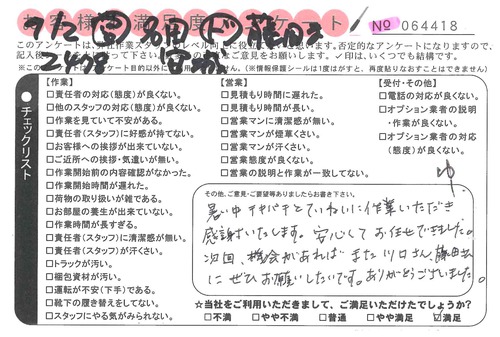 お客様満足度アンケート
№ 064418
7/2
このアンケートは、弊社作業スタッフのレベル向上に役立
否定的なアンケートになりますので、
記入後
ご意見をお願いします。✓印は、いくつでも結構です。
※このアンケートは
目的以外に
(※情報保護シールは1度はがすと、再度貼りなおすことはできません)
●チェックリスト
【作業】
□責任者の対応(態度)が良くない。
□他のスタッフの対応(態度)が良くない。
□作業を見ていて不安がある。
□責任者(スタッフ)に好感が持てない。
□お客様への挨拶が出来ていない。
□ご近所への挨拶・気遣いが無い。
□作業開始前の内容確認がなかった。
□作業開始時間が遅れた。
□荷物の取り扱いが雑である。
□お部屋の養生が出来ていない。
□作業時間が長すぎる。
□責任者(スタッフ)に清潔感が無い。
□責任者(スタッフ)が汗くさい。
□トラックが汚い。
□梱包資材が汚い。
□運転が不安(下手)である。
□靴下の履き替えをしてない。
□スタッフにやる気がみられない。
【営業】
□見積もり時間に遅れた。
□見積もり時間が長い。
□営業マンに清潔感が無い。
□営業マンが煙草くさい。
□営業マンが汗くさい。
□営業態度が良くない。
□営業の説明と作業が一致してない。
【受付・その他】
□電話の対応が良くない。
□オプション業者の説明
・作業が良くない。
□オプション業者の対応
(態度)が良くない。
その他、ご意見・ご要望等ありましたらお書き下さい。
暑い中テキパキとていねいに作業いただき
感謝いたします。安心してお任せできました。
次回、機会があればまた川口さん、
にぜひお願いしたいです。ありがとうございました。
★当社をご利用いただきまして、ご満足いただけたでしょうか?
□不満 □やや不満 □普通 □やや満足 ☑満足